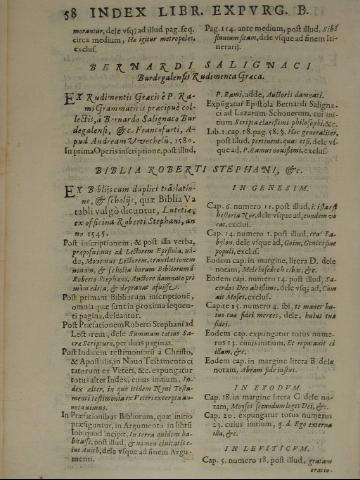 58 INDEX LIBR. EXPVRG. B.
morantur, dele vsq; ad illud pag. seq.
circa medium, He igitur metropoles,
exclus.
Pag. 114. ante medium, post illud, Sibi
finuium scam, dele vsque ad finem Iti-
nerarij.
BERNARDI SALIGNACI
Burdegalensis Rudimenta Græca.
EX Rudimentis Græcis è P. Ra-
mi Grammaticis præcipuè col-
lectis, à Bernardo Salignaco Bur
degalensi, &c. Francofurti, A-
pud Andream VVechelũ, 1580.
In prima Operis inscriptione, post illud,
P. Rami, adde, Auctoris damnati.
Expũgatur Epistola Bernardi Saligna-
ci ad Lazarum Schonerum, cui ini-
tium Scripta clarissimi philosophi, &c.
Lib. 2. cap. 18. pag. 58. §. Hæc generaliter,
post illud, pertinent, quæ est, dele vs-
que ad, P. Ramus nouissimè, exclus.
BIBLIA ROBERTI STEPHANI, &c.
EX Biblijs cum duplici trãslatio-
ne, & scholijs, quæ Biblia Va
tabli vulgò dicuntur, Lutetiæ,
ex officina Roberti Stephani, an-
no 1545.
Post inscriptionem, & post illa verba,
proposuimus ad Lectorem Epistola, ad-
do, Moneмus Lectorem, translationem
nouam, & scholia horum Bibliorum à
Roberto Stephano, Auctore damnato pri
mùm edita, & deprauata fuisse.
Post primam Bibliorum inscriptionẽ,
omnia quæ sunt in proxima sequen-
ti pagina, deleantur.
Post Præfationem Roberti Stephani ad
Lectorem, dele Summam totius Sa-
cræ Scripturæ, per duas paginas.
Post Indicem testimoniorũ à Christo,
& Apostolis, in Nouo Testamento ci
tatorum ex Veteri, &c. expungatur
totus alter Index, cuius initium, In-
dex alter, in quo itidem Noui Testa-
menti testimonia ex Veteri excerpta an-
notauimus.
IN GENESIM.
Cap. 6. numero 11. post illud,
dele vsque ad, eiusdem vo
cat, exclus.
Cap. 14. numero 1. post illud, erat Ba-
bylon, dele vsque ad, Goim, Gentes seu
populi, exclus.
Eodem cap. in margine, litera D. dele
notam, Melchisedech cibus, &c.
Eodem cap. numero 14. post illud, Sa-
cerdos Deo altissimo, dele vsq; ad, Cùm
ait Moses, exclus.
Cap. 15. numero 4. ibi, te manet ha-
ius tuæ fidei merces, dele, huius tuæ
fidei.
Eodem cap. expungatur totus nume-
rus 13. cuius initium, Et reputauit ei
illam, &c.
Eodem cap. in margine litera B dele
notam, Abram fide iustus.
IN EXODVM.
Cap. 18. in margine litera C dele no-
tam, Moyses secundùm leges Dei, &c.
Cap. 20. expungatur totus numerus
23. cuius initium, q. d. Ego externa
illa, &c.
IN LEVITICVM.
Cap. 5. numero 18. post illud, gratiam